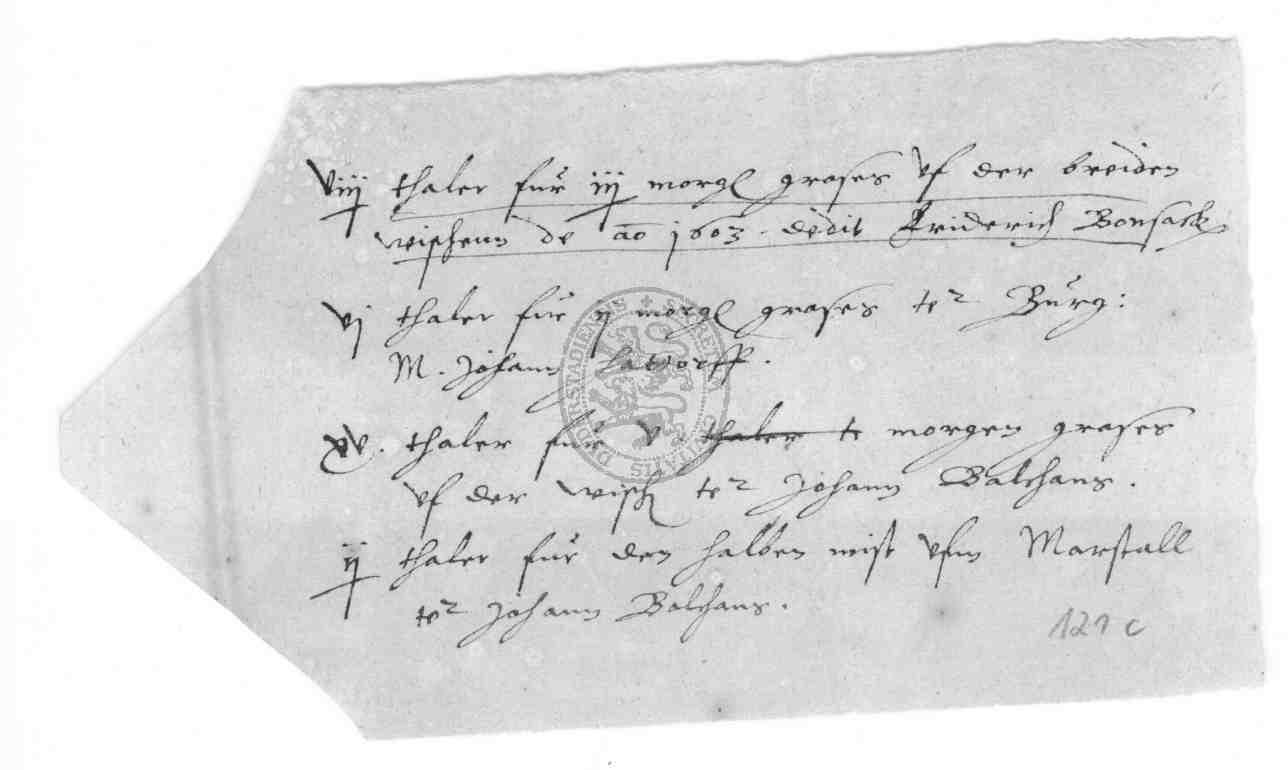 viij thaler für iij morgl grases vf der breiden
wischenn de ao 1603. dedit Friderich Bonsack
vj thaler für ij morgl grases ter Bürg:
M. Johann Hattorff.
xv. thaler für v thaler te morgen grases
vf der wisch ter Johann Balthans.
ij thaler für den halben mist vfm Marstall
ter Johann Balthans.
121 c